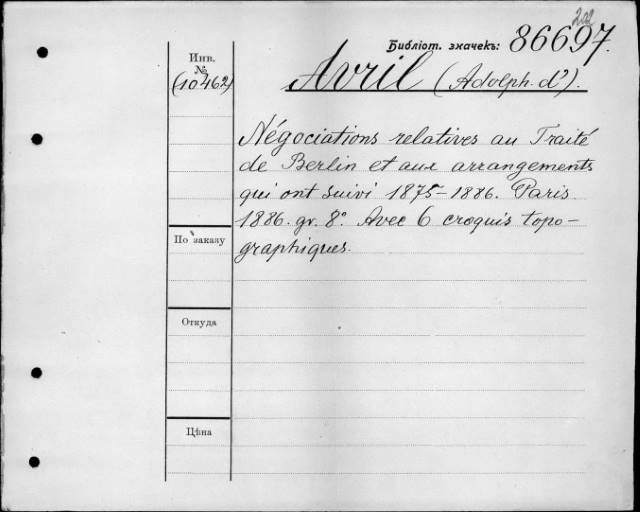 202
Библіот. значекъ: 86697.
Инв.
№
(10462)
Avril (Adolph. d').
Négociations relatives au Traité
de Berlin et aux arrangements
qui ont suivi 1875-1886. Paris
1886. gr. 8°. Avec 6 croquis topo-
graphiques.
По заказу
Откуда
Цѣна